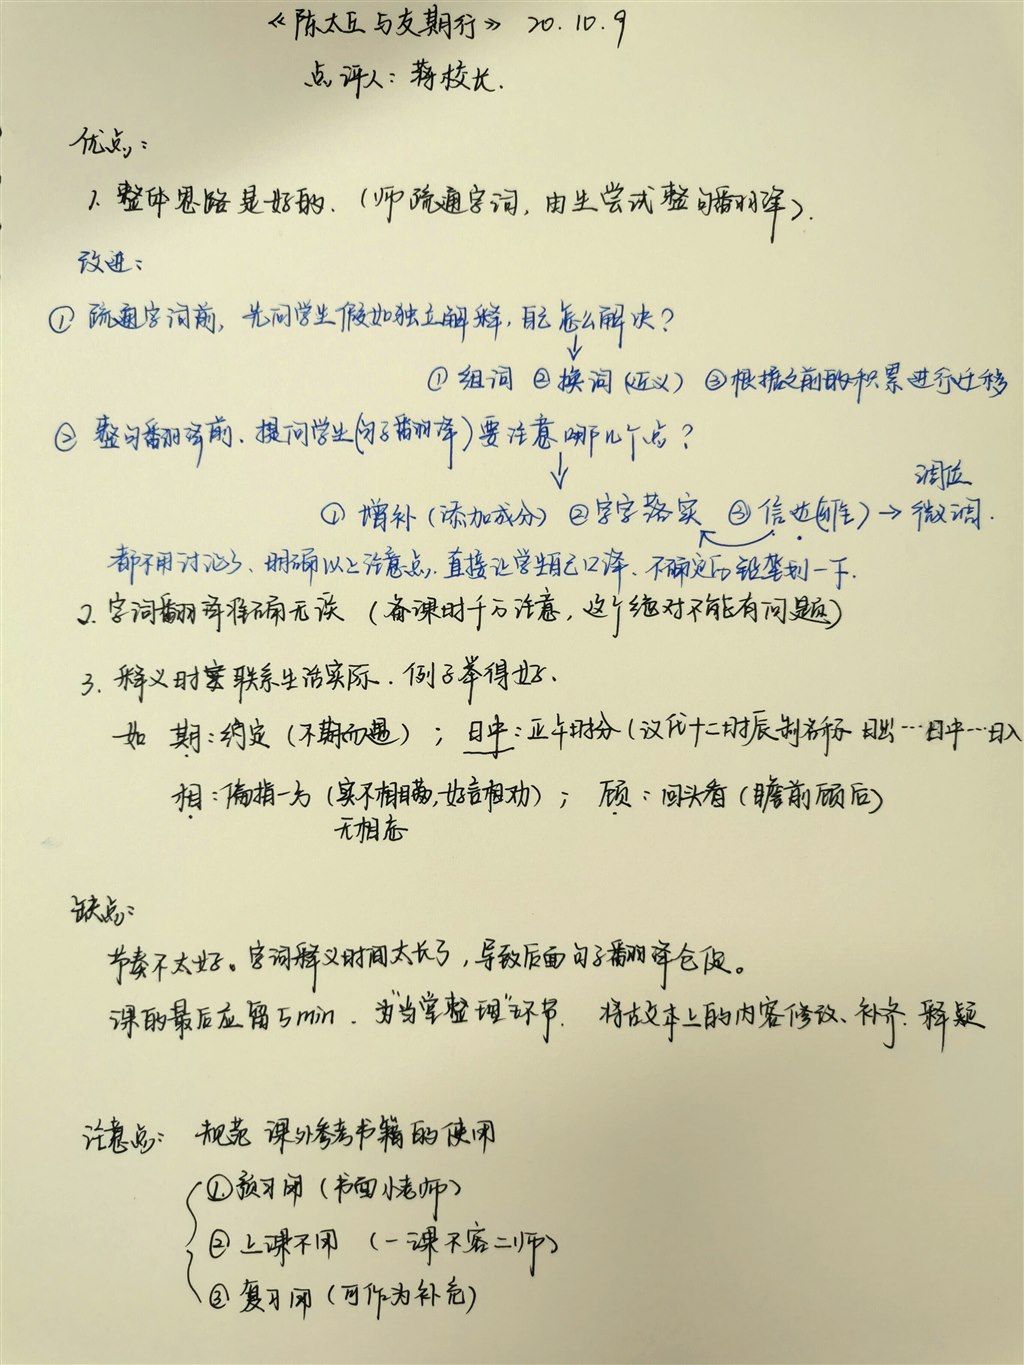 《陈太丘与友期行》 20.10.9
点评人：蒋校长.
优点：
1. 整体思路是好的.（师疏通字词，由生尝试整句翻译）.
改进：
① 疏通字词前，先问学生假如独立解释，自己怎么解决？
↓
① 组词 ② 换词（近义） ③ 根据之前的积累进行迁移
② 整句翻译前.提问学生(句子翻译)要注意哪几个点？
↓ 调位
① 增补（添加成分） ② 字字落实 ③ 信达(雅) → 微调.
都不用讨论了、明确以上注意点.直接让学生自己口译、不确定的铅笔划一下.
2. 字词翻译准确无误（备课时千万注意，这个绝对不能有问题）
3. 释义时联系生活实际.例子举得好.
如 期：约定（不期而遇）；日中：正午时分（汉代十二时辰制名称 日出…日中…日入
相：偏指一方（实不相瞒，好言相劝）； 顾：回头看（瞻前顾后）
无相态
缺点：
节奏不太好。字词释义时间太长了，导致后面句子翻译仓促。
课的最后应留5min.为“当堂整理”环节. 将古文本上的内容修改、补齐.释疑
注意点： 规范 课外参考书籍的使用
① 预习闭（书面小老师）
② 上课不用 （一课不容二师）
③ 复习用（可作为补充）